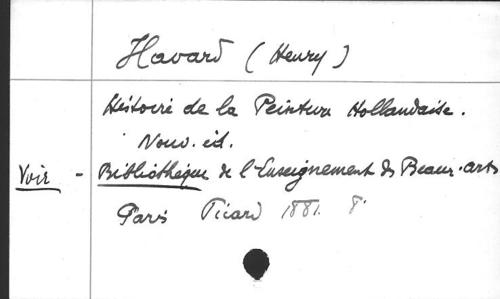 Havard (Henry)
Histoire de la Peinture Hollandaise.
Nouv. éd.
Voir - Bibliothèque de l'Enseignement des Beaux-arts
Paris Picard 1881. 8°